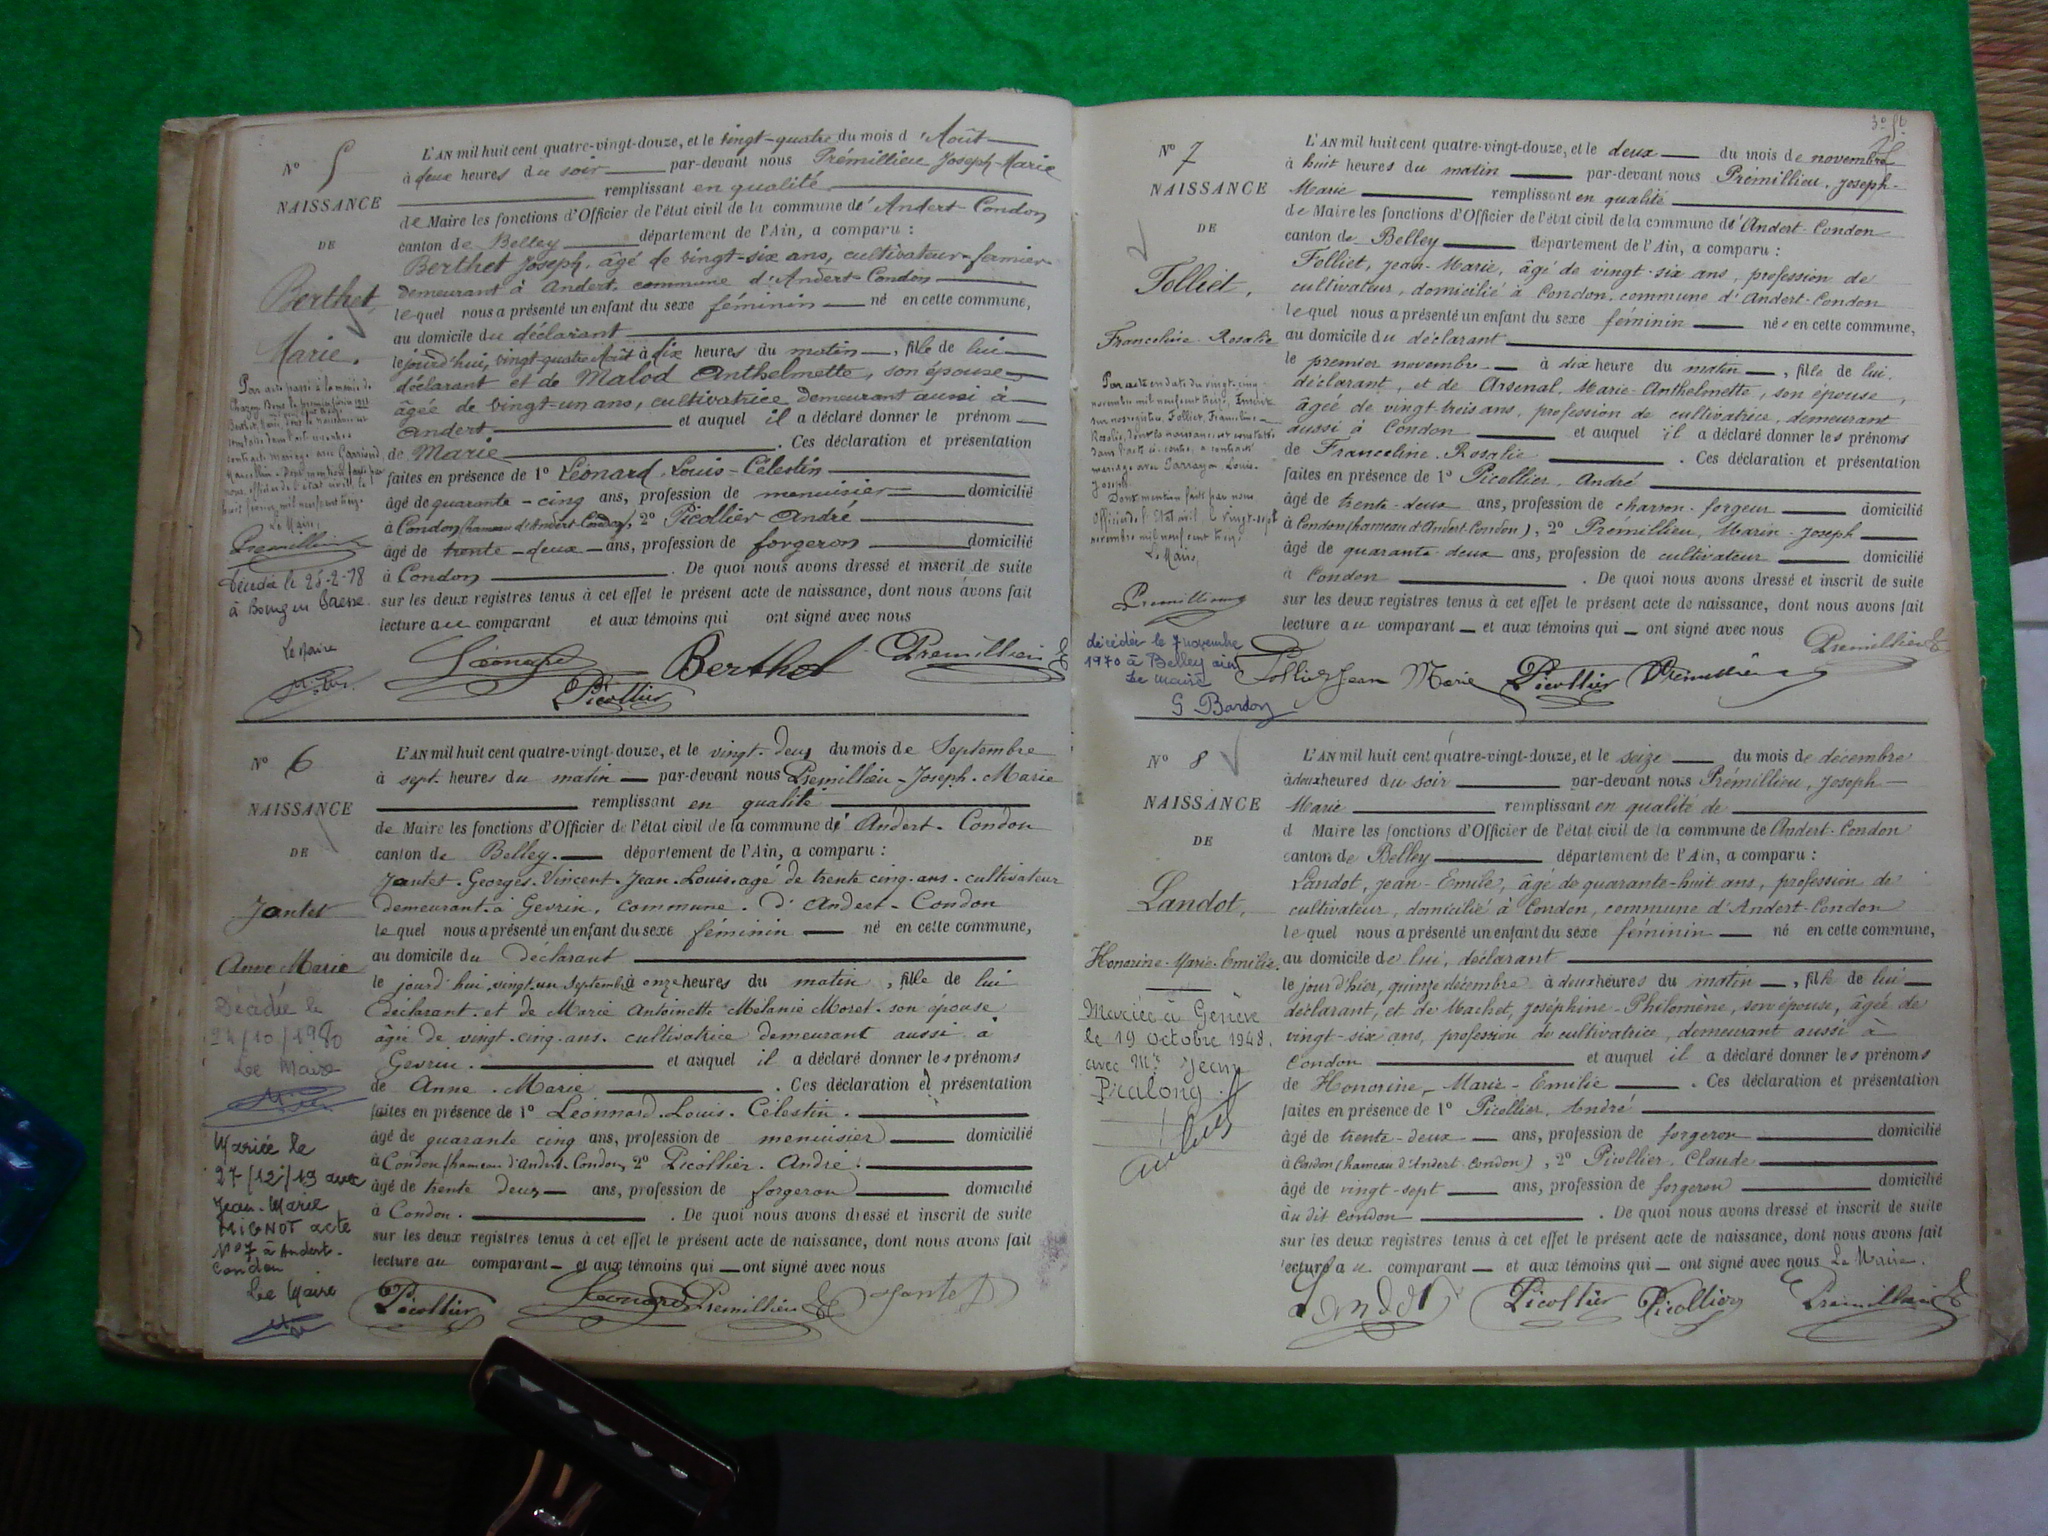 N° 5
NAISSANCE
DE
Berthet
Marie.
Par acte passé à la mairie de
Berthet, Marie, dont la naissance est
constatée dans l'acte ci-contre a
contracté mariage avec
Le Maire,
Premillieu
à Bourg en Bresse
Le Maire
L'AN mil huit cent quatre-vingt-douze, et le vingt-quatre du mois d'Août
à deux heures du soir par-devant nous Prémillieu Joseph-Marie
remplissant en qualité
de Maire les fonctions d'Officier de l'état civil de la commune d'Andert-Condon
canton de Belley département de l'Ain, a comparu :
Berthet Joseph, âgé de vingt-six ans, cultivateur-fermier
demeurant à Andert, commune d'Andert-Condon
lequel nous a présenté un enfant du sexe féminin né en cette commune,
au domicile du déclarant
le jourd'hui, vingt-quatre Août à dix heures du matin, fille de lui
déclarant et de Malod Anthelmette, son épouse
âgée de vingt-un ans, cultivatrice demeurant aussi à
Andert et auquel il a déclaré donner le prénom
de Marie. Ces déclaration et présentation
faites en présence de 1° Léonard, Louis-Célestin
âgé de quarante-cinq ans, profession de menuisier domicilié
à Condon (hameau d'Andert-Condon), 2° Picollier André
âgé de trente-deux ans, profession de forgeron domicilié
à Condon. De quoi nous avons dressé et inscrit de suite
sur les deux registres tenus à cet effet le présent acte de naissance, dont nous avons fait
lecture au comparant et aux témoins qui ont signé avec nous
Léonard Berthet Premillieu
Picollier
N° 6
NAISSANCE
DE
Jantet
Anne Marie
Décédée le
24/10/1980
Le Maire
Mariée le
27/12/19 avec
Jean-Marie
MIGNOT acte
N° 7 à Andert-
Condon
Le Maire
L'AN mil huit cent quatre-vingt-douze, et le vingt-deux du mois de Septembre
à sept heures du matin par-devant nous Premillieu-Joseph-Marie
remplissant en qualité
de Maire les fonctions d'Officier de l'état civil de la commune d'Andert-Condon
canton de Belley. département de l'Ain, a comparu :
Jantet-Georges-Vincent-Jean-Louis agé de trente cinq ans-cultivateur
demeurant à Gevrin, commune d'Andert-Condon
lequel nous a présenté un enfant du sexe féminin né en cette commune,
au domicile du déclarant
le jourd'hui, vingt-un Septembre à onze heures du matin, fille de lui
déclarant et de Marie Antoinette Mélanie Moret son épouse
âgé de vingt-cinq ans cultivatrice demeurant aussi à
Gevrin. et auquel il a déclaré donner les prénoms
de Anne-Marie. Ces déclaration et présentation
faites en présence de 1° Léonnard-Louis-Célestin.
âgé de quarante cinq ans, profession de menuisier domicilié
à Condon (hameau d'Andert-Condon, 2° Picollier-André.
âgé de trente deux ans, profession de forgeron domicilié
à Condon. De quoi nous avons dressé et inscrit de suite
sur les deux registres tenus à cet effet le présent acte de naissance, dont nous avons fait
lecture au comparant et aux témoins qui ont signé avec nous
Picollier Léonard Premillieu Jantet
N° 7
NAISSANCE
DE
Folliet,
Franceline-Rosalie
Par acte en date du vingt-cinq
novembre mil neuf cent treize, inscrit
sur nos registres, Folliet, Franceline-
Rosalie, dont la naissance est constatée
dans l'acte ci-contre, a contracté
mariage avec Louis-
Joseph.
Dont mention faite par nous
Officier de l'Etat civil, le vingt-sept
novembre mil neuf cent treize.
Le Maire,
Premillieu
décédée le 7 novembre
1970 à Belley ain
Le Maire
G Bardon
L'AN mil huit cent quatre-vingt-douze, et le deux du mois de novembre
à huit heures du matin par-devant nous Prémillieu, Joseph-
Marie remplissant en qualité
de Maire les fonctions d'Officier de l'état civil de la commune d'Andert-Condon
canton de Belley département de l'Ain, a comparu :
Folliet, Jean-Marie, âgé de vingt-six ans, profession de
cultivateur, domicilié à Condon, commune d'Andert-Condon
lequel nous a présenté un enfant du sexe féminin née en cette commune,
au domicile du déclarant
le premier novembre à dix heure du matin, fille de lui
déclarant, et de Arsenal, Marie-Anthelmette, son épouse,
âgée de vingt-trois ans, profession de cultivatrice, demeurant
aussi à Condon et auquel il a déclaré donner les prénoms
de Franceline-Rosalie. Ces déclaration et présentation
faites en présence de 1° Picollier, André
âgé de trente-deux ans, profession de charron-forgeur domicilié
à Condon (hameau d'Andert-Condon), 2° Prémillieu, Marin-Joseph
âgé de quarante-deux ans, profession de cultivateur domicilié
à Condon. De quoi nous avons dressé et inscrit de suite
sur les deux registres tenus à cet effet le présent acte de naissance, dont nous avons fait
lecture au comparant et aux témoins qui ont signé avec nous
Premillieu
Folliet Jean Marie Picollier Prémillieu
N° 8
NAISSANCE
DE
Landot,
Honorine-Marie-Emilie.
Mariée à Genève
le 19 octobre 1948.
avec Mr. Jean
Pralong
L'AN mil huit cent quatre-vingt-douze, et le seize du mois de décembre
à deux heures du soir par-devant nous Prémillieu, Joseph-
Marie remplissant en qualité de
d Maire les fonctions d'Officier de l'état civil de la commune de Andert-Condon
canton de Belley département de l'Ain, a comparu :
Landot, Jean-Emile, âgé de quarante-huit ans, profession de
cultivateur, domicilié à Condon, commune d'Andert-Condon
lequel nous a présenté un enfant du sexe féminin né en cette commune,
au domicile de lui, déclarant
le jour d'hier, quinze décembre à deux heures du matin, fille de lui
déclarant, et de Machet, Joséphine-Philomène, son épouse, âgée de
vingt-six ans, profession de cultivatrice, demeurant aussi à
Condon et auquel il a déclaré donner les prénoms
de Honorine-Marie-Emilie. Ces déclaration et présentation
faites en présence de 1° Picollier, André
âgé de trente-deux ans, profession de forgeron domicilié
à Condon (hameau d'Andert-Condon), 2° Picollier, Claude
âgé de vingt-sept ans, profession de forgeron domicilié
au dit Condon. De quoi nous avons dressé et inscrit de suite
sur les deux registres tenus à cet effet le présent acte de naissance, dont nous avons fait
lecture au comparant et aux témoins qui ont signé avec nous Le Maire.
Landot Picollier Picollier Premillieu